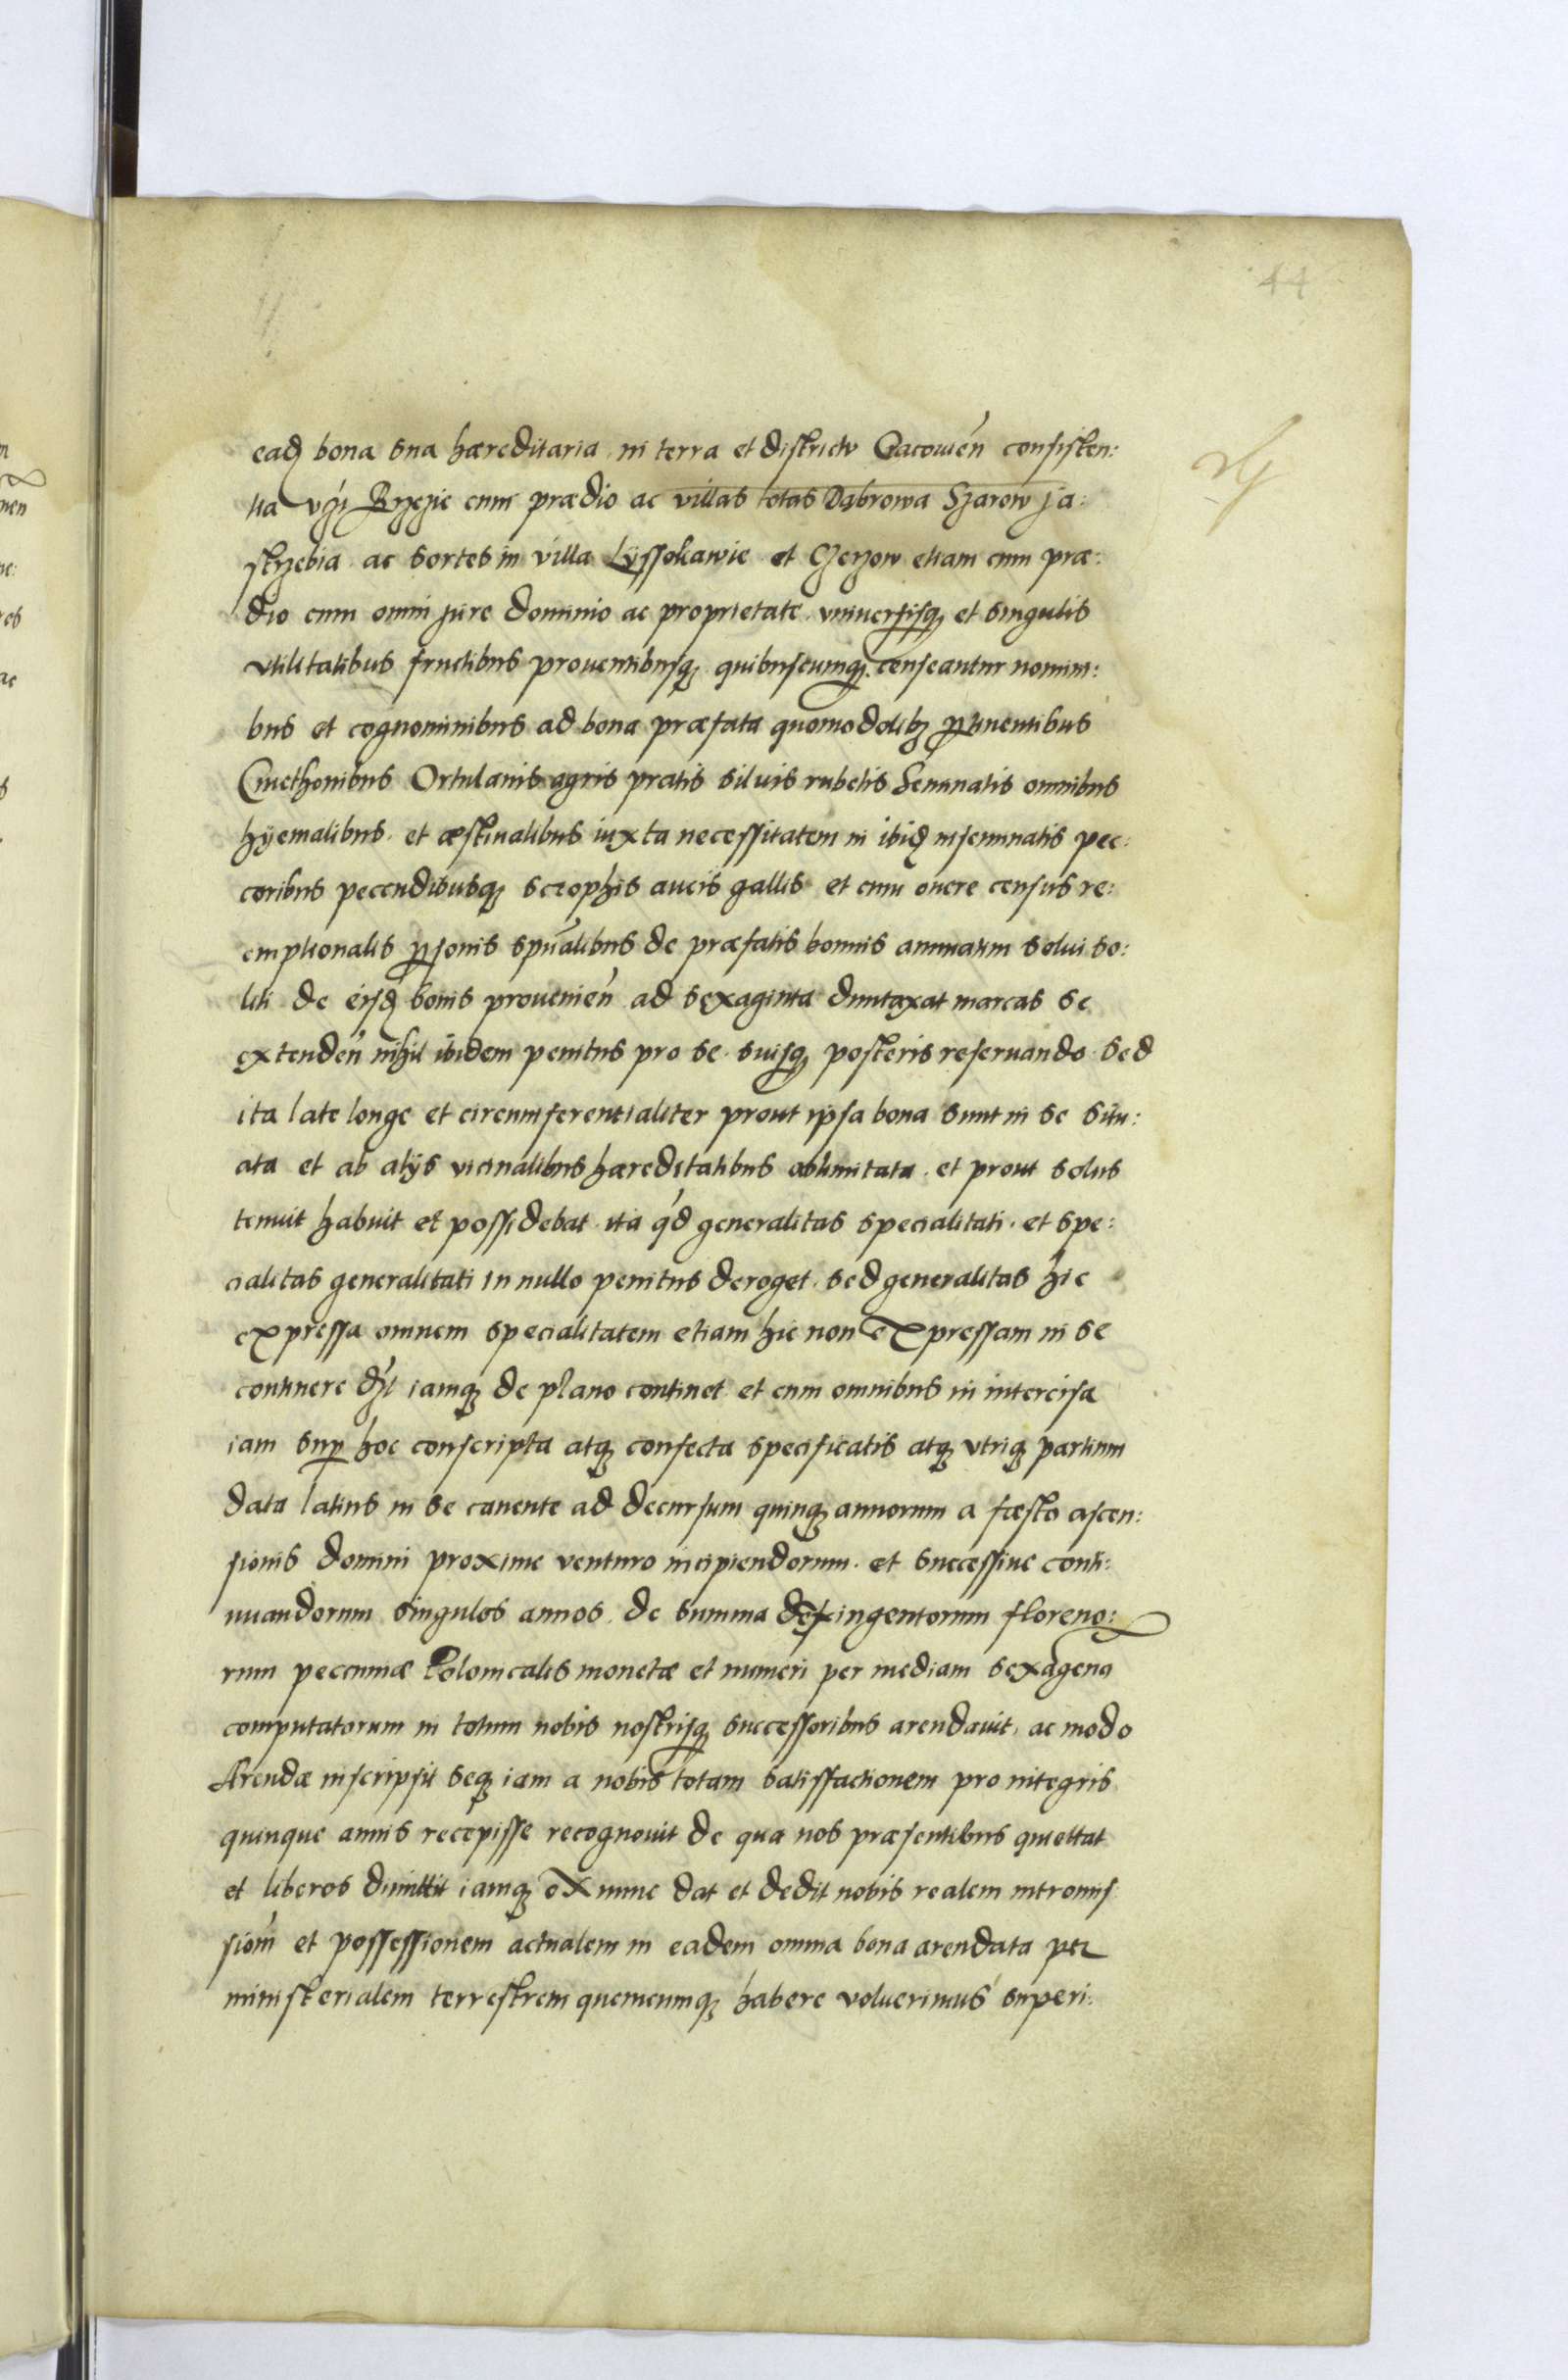 44
eadꝫ bona sua hæreditaria in terra et districtu Cracouień consisten:
tia vꝫ Brzezie cum prædio ac villas totas Dąbrowa Szarow Ja:
strzebia ac sortes in villa Lÿssokawie et Czyzow etiam cum præ:
dio cum omni jure dominio ac proprietate vniuersisqꝫ et singulis
vtilitatibus fructibus prouentibusqꝫ quibuscumqꝫ censeantur nomini:
bus et cognominibus ad bona præfata quomodolibꝫ ꝑtinentibus
Cmethonibus Ortulanis agris pratis siluis rubetis Seminatis omnibus
hÿemalibus et æstiualibus iuxta necessitatem in ibidꝫ inseminatis pec:
coribus pecudibusqꝫ scrophis aucis gallis et cum onere census re:
emptionalis ꝑsonis spūalibus de præfatis bonnis annuatim solui so:
liti de eisdꝫ bonis prouenień ad sexaginta duntaxat marcas se
extendeń nihil ibidem penitus pro se suisqꝫ posteris reseruando Sed
ita late longe et circumferentialiter prout ipsa bona sunt in se situ:
ata et ab alÿs vicinalibus hæreditatibus oblimitata et prout solus
tenuit habuit et possidebat ita qd generalitas specialitati et spe:
cialitas generalitati in nullo penitus deroget sed generalitas hic
expressa omnem specialitatem etiam hic non expressam in se
continere iamqꝫ de plano continet et cum omnibus in intercisa
iam suꝑ hoc conscripta atqꝫ confecta specificatis atqꝫ vtriqꝫ partium
data latius in se canente ad decursum quinqꝫ annorum a fæsto ascen:
sionis domini proxime venturo incipiendorum et successiue conti:
nuandorum singulos annos de summa floreno:
rum pecuniæ Polonicalis monetæ et numeri per mediam sexagena
computatorum in totum nobis nostrisqꝫ successoribus arendauit ac modo
Arendæ inscripsit seqꝫ iam a nobis totam satisfactionem pro integris
quinque annis recepisse recognouit de qua nos præsentibus quiettat
et liberos dimittit iamqꝫ ex nunc dat et dedit nobis realem intromis
sioń et possessionem actualem in eadem omnia bona arendata per
ministerialem terrestrem quemcumqꝫ habere voluerimus superi: